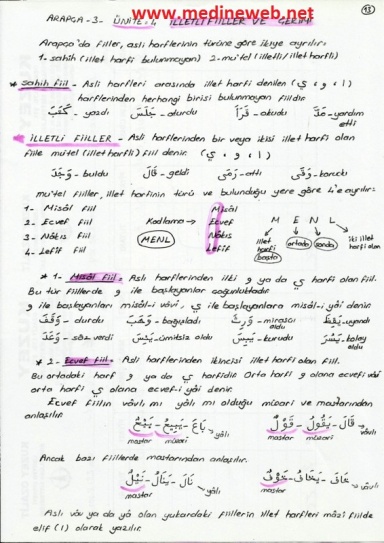 www.medineweb.net
13
ARAPÇA-3- ÜNİTE: 4, İLLETLİ FİİLLER VE ÇEKİMİ
Arapça'da fiiller, asli harflerinin türüne göre ikiye ayrılır:
1- sahih (illet harfi bulunmayan) 2- mu'tel (illetli/illet harfli)
* Sahih fiil - Asli harfleri arasında illet harfi denilen (ا ، و ، ي)
harflerinden herhangi birisi bulunmayan fiildir.
كَتَبَ - yazdı جَلَسَ - oturdu قَرَأَ - okudu مَدَّ - yardım etti
* İLLETLİ FİİLLER - Asli harflerinden bir veya ikisi illet harfi olan
fiile mu'tel (illet harfli) fiil denir. (ا ، و ، ي)
وَجَدَ - buldu قَالَ - geldi رَمَى - attı وَقَى - korudu
mu'tel fiiller, illet harfinin türü ve bulunduğu yere göre 4'e ayrılır:
1- Misâl fiil
2- Ecvef fiil
3- Nâkıs fiil
4- Lefîf fiil
Kodlama → MENL
Misâl
Ecvef
Nâkıs
Lefîf
M E N L
illet harfi başta
ortada
sonda
iki illet harfi olan
* 1- Misâl fiil = Asli harflerinden ilki و ya da ي harfi olan fiil.
Bu tür fiillerde و ile başlayanlar çoğunluktadır.
و ile başlayanları misâl-i vâvî, ي ile başlayanlara misâl-i yâî denir.
وَقَفَ - durdu وَهَبَ - bağışladı وَرِثَ - mirasçı oldu يَقِظَ - uyandı
وَعَدَ - söz verdi يَئِسَ - ümitsiz oldu يَبِسَ - kurudu يَسُرَ - kolay oldu
* 2- Ecvef fiil = Asli harflerinden ikincisi illet harfi olan fiil.
Bu ortadaki harf و ya da ي harfidir. Orta harfi و olana ecvef-i vâvî
orta harfi ي olana ecvef-i yâî denir.
Ecvef fiilin vâvlı mı yâlı mı olduğu müzari ve mastarından
anlaşılır.
قَالَ - يَقُولُ - قَوْلٌ بَاعَ - يَبِيعُ - بَيْعٌ
mastar vâvlı mastar müzari yâlı
Ancak bazı fiillerde mastarından anlaşılır.
خَافَ - يَخَافُ - خَوْفٌ نَالَ - يَنَالُ - نَيْلٌ
mastar vâvlı mastar yâlı
Aslı vâv ya da yâ olan yukarıdaki fiillerin illet harfleri mâzî fiilde
elif (ا) olarak yazılır.